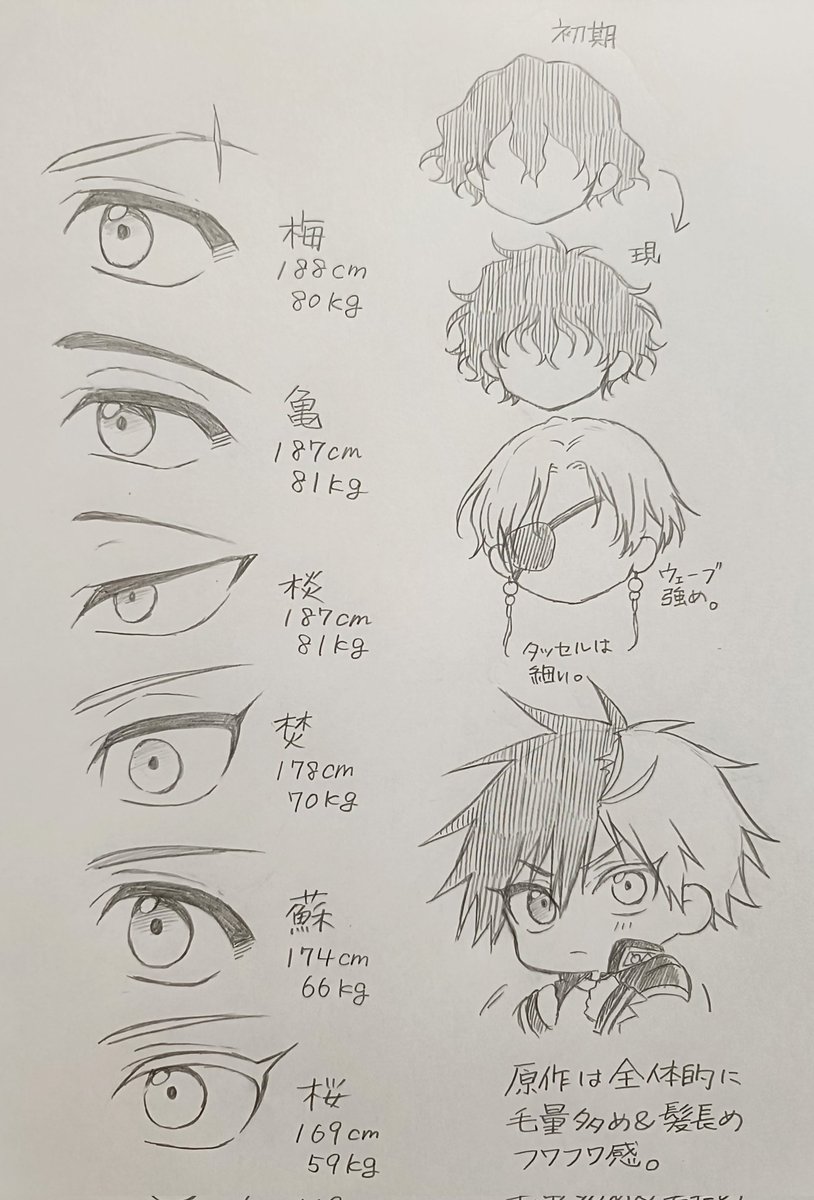 初期
現
梅
188cm
80kg
亀
187cm
81kg
ウェーブ
強め。
タッセルは
細い。
棪
187cm
81kg
焚
178cm
70kg
蘇
174cm
66kg
桜
169cm
59kg
原作は全体的に
毛量多め&髪長め
フワフワ感。